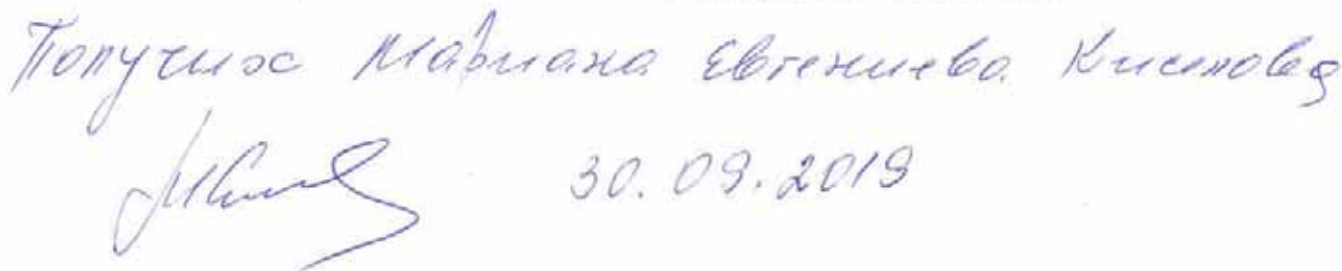 Получих Мариана Евгениева
30.09.2019